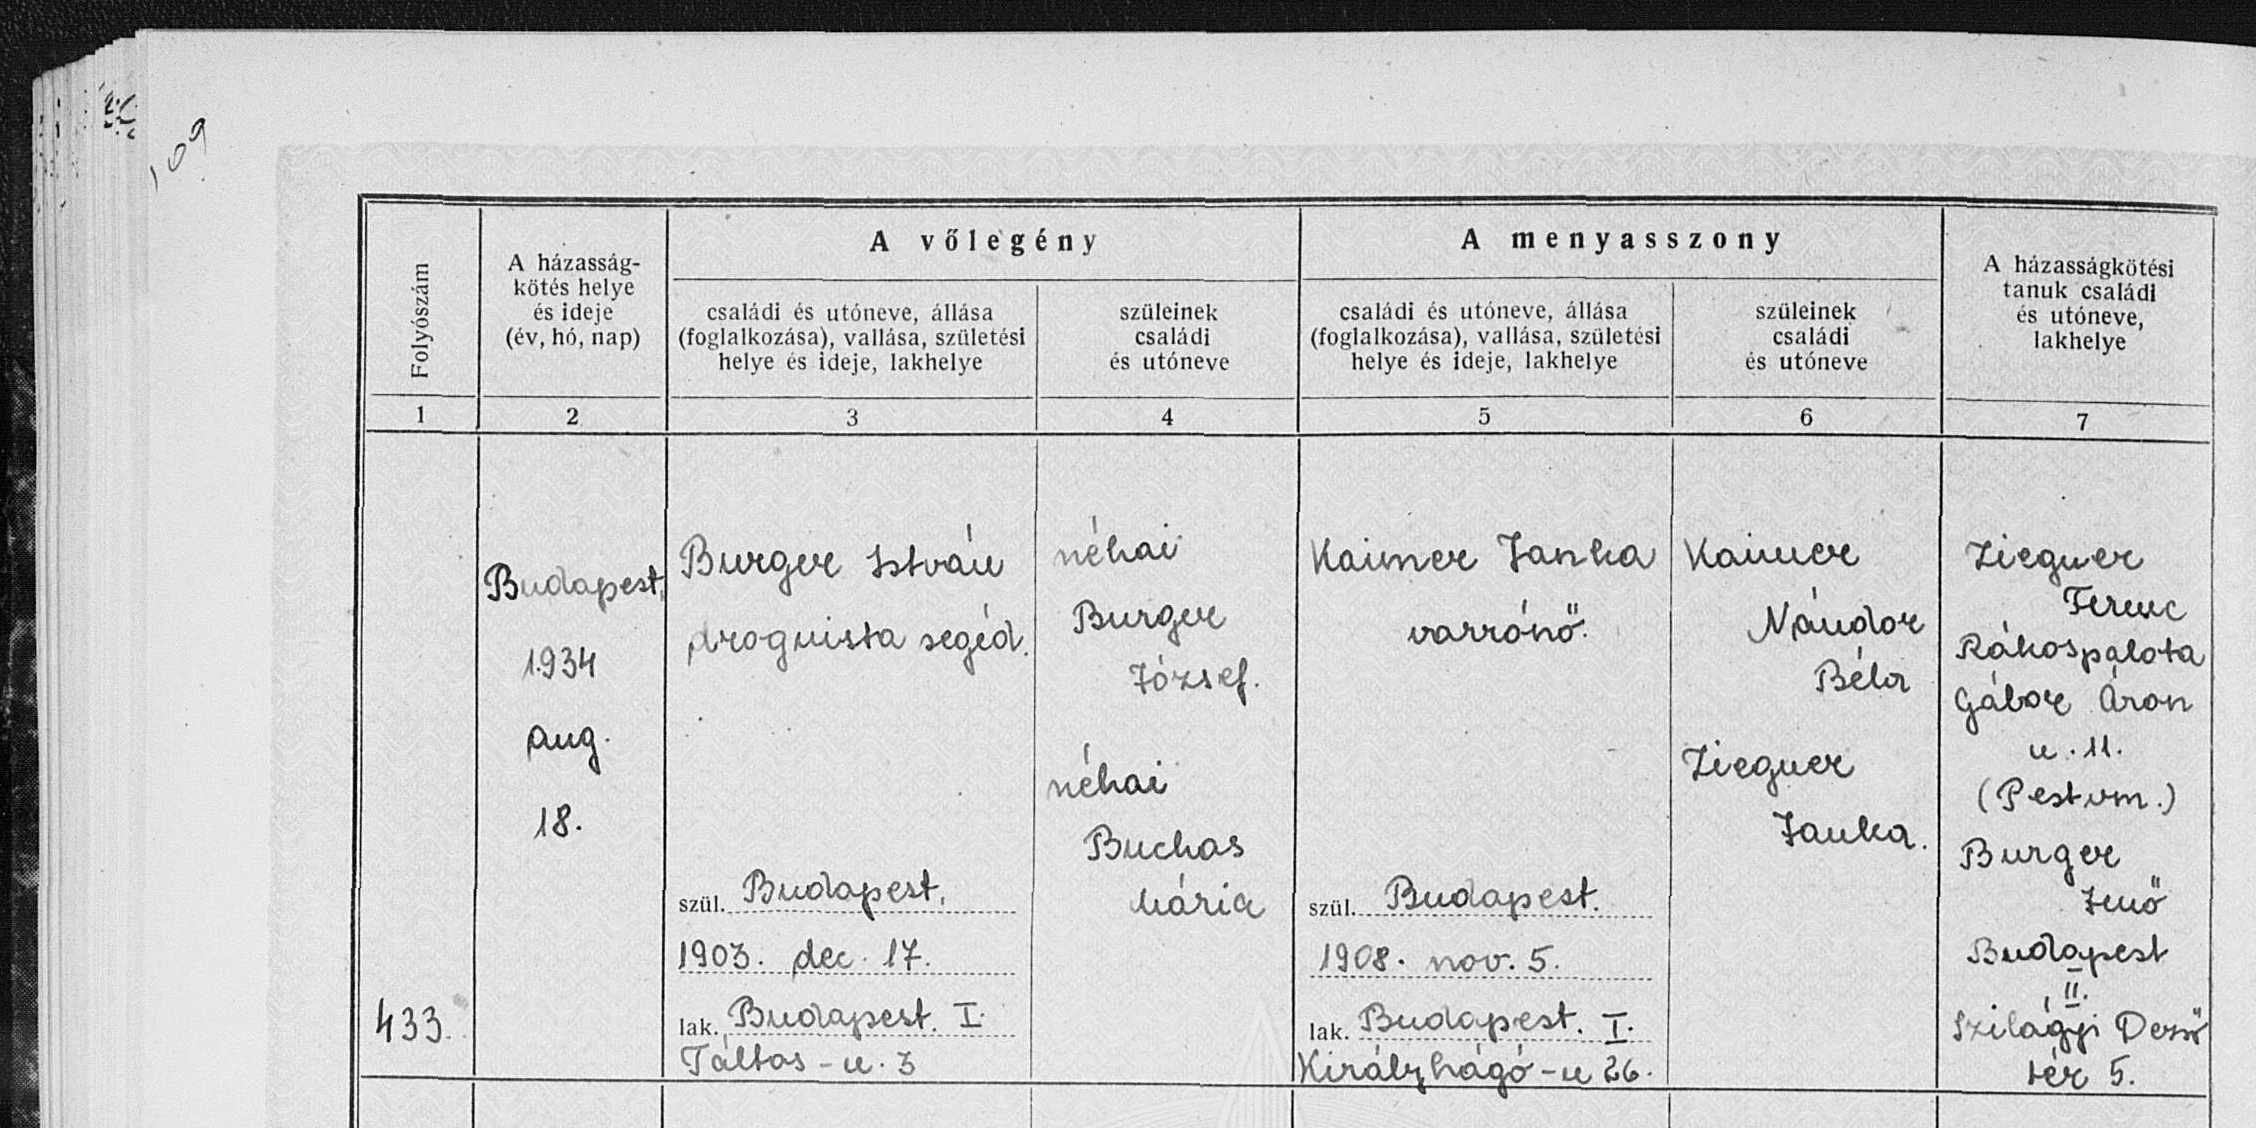 109
A vőlegény
A menyasszony
Folyószám
A házasság-
kötés helye
és ideje
(év, hó, nap)
családi és utóneve, állása
(foglalkozása), vallása, születési
helye és ideje, lakhelye
szüleinek
családi
és utóneve
családi és utóneve, állása
(foglalkozása), vallása, születési
helye és ideje, lakhelye
szüleinek
családi
és utóneve
A házasságkötési
tanuk családi
és utóneve,
lakhelye
1
2
3
4
5
6
7
433.
Budapest,
1934
aug.
18.
Burger István
droguista segéd.
szül. Budapest,
1903. dec. 17.
lak. Budapest. I.
Táltos-u. 3
néhai
Burger
József.
néhai
Buchas
Mária
Kaimer Janka
varrónő.
szül. Budapest.
1908. nov. 5.
lak. Budapest. I.
Királyhágó-u 26.
Kaimer
Nándor
Béla
Ziegner
Janka.
Ziegner
Ferenc
Rákospalota
Gábor Áron
u. 11.
(Pestvm.)
Burger
Jenő
Budapest
II.
Szilágyi Dezső
tér 5.